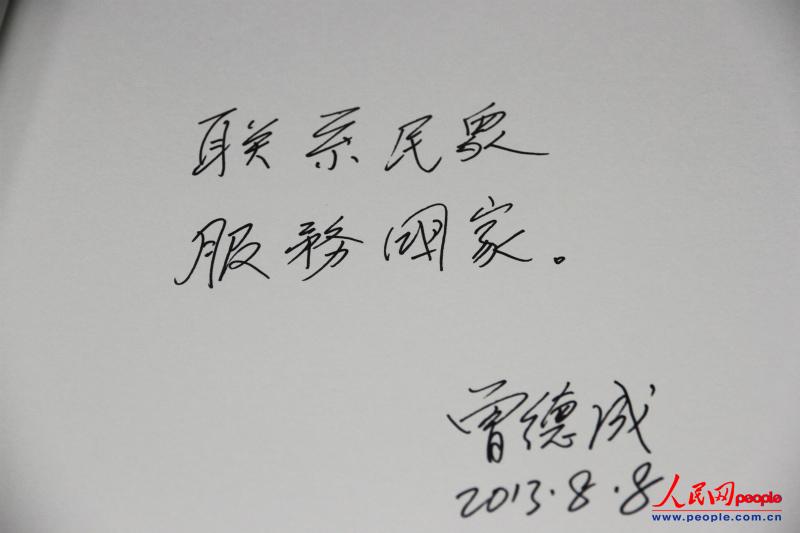 联系民眾
服務國家。
曾德成
2013.8.8
人民网people
www.people.com.cn